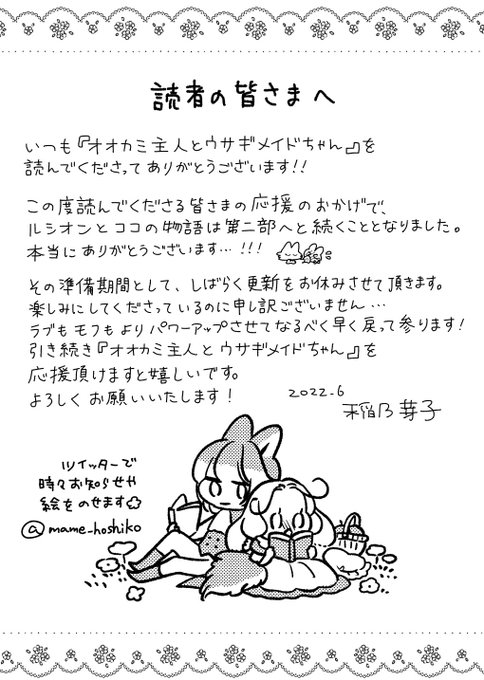 読者の皆さまへ
いつも『オオカミ主人とウサギメイドちゃん』を
読んでくださってありがとうございます!!
この度読んでくださる皆さまの応援のおかげで、
ルシオンとココの物語は第二部へと続くこととなりました。
本当にありがとうございます…!!!
その準備期間として、しばらく更新をお休みさせて頂きます。
楽しみにしてくださっているのに申し訳ございません…
ラブもモフもよりパワーアップさせてなるべく早く戻って参ります!
引き続き『オオカミ主人とウサギメイドちゃん』を
応援頂けますと嬉しいです。
よろしくお願いいたします!
2022.6
稲乃芽子
ツイッターで
時々お知らせや
絵をのせます
@mame_hoshiko